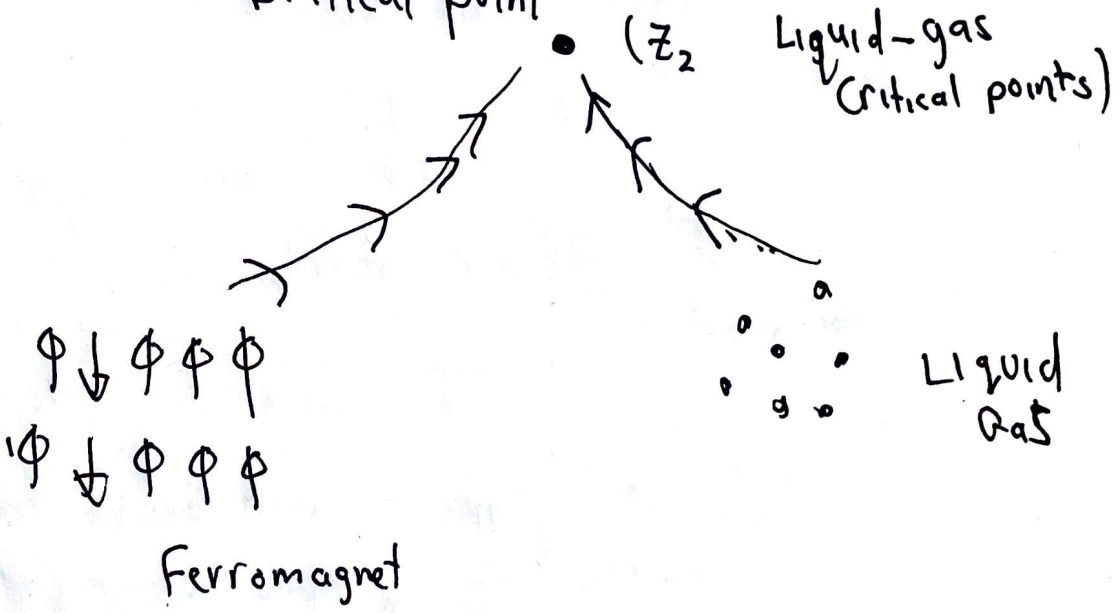 critical point
(Z₂ Liquid-gas
Critical points)
Liquid
Gas
Ferromagnet